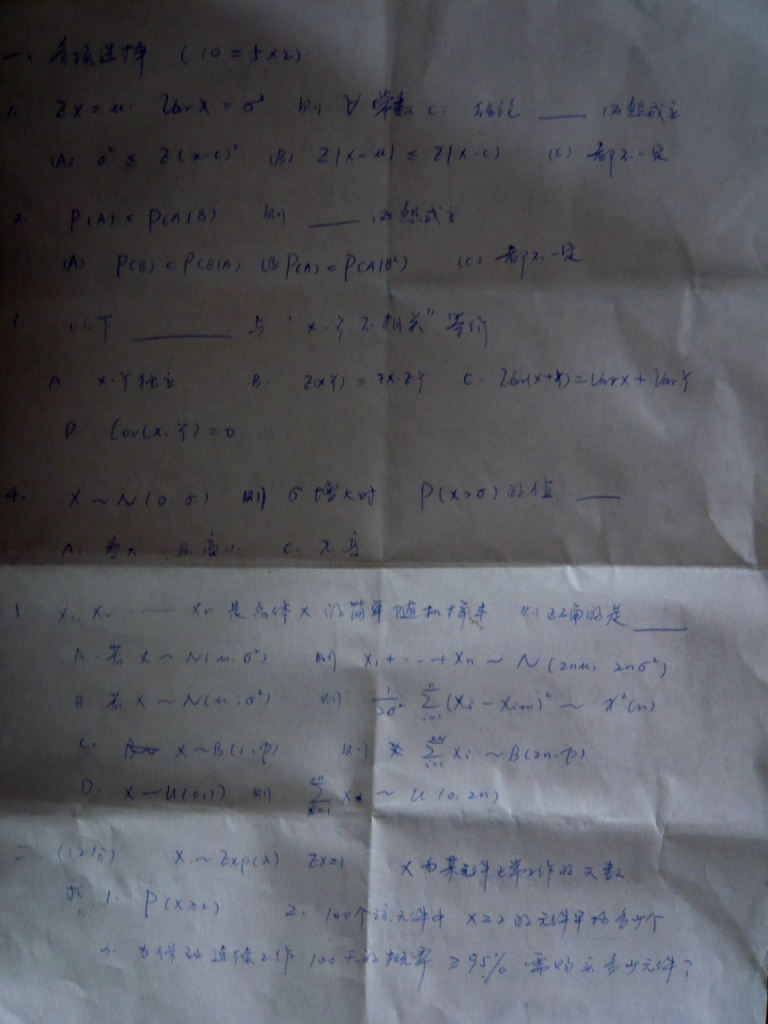 一. 多项选择 (10=5×2)
1. EX=μ. VarX=σ² 则 ∀ 常数 c. 结论 ____ 必然成立
(A) σ² ≤ E(x-c)² (B) E|X-μ| ≤ E|X-c| (C) 都不一定
2. P(A)<P(A|B) 则 ____ 必然成立
(A) P(B)<P(B|A) (B) P(A)<P(A|Bᶜ) (C) 都不一定
3. 以下 ____ 与 "X.Y不相关" 等价
A. X.Y独立 B. E(XY)=EX·EY C. Var(X+Y)=VarX+VarY
D Cov(X,Y)=0
4. X~N(0.σ) 则 σ增大时 P(X>σ)的值 ____
A. 变大 B. 变小 C. 不变
5 X₁ X₂ …… Xn 是总体X的简单随机样本 则正确的是 ____
A. 若 X~N(μ.σ²) 则 X₁+…+Xn ~ N(2nμ, 2nσ²)
B. 若 X~N(μ.σ²) 则 1/2σ² Σ(Xi-Xi+n)² ~ χ²(n)
C. X~B(1,p) 则 ΣXi ~ B(2n.p)
D. X~U(0,1) 则 ~ U(0,2n)
二. (12分) X~Exp(λ) EX=1 X为某元件正常工作的天数
求 1. P(X≥2) 2. 100个该元件中 X≥2的元件平均多少个
3. 为保证连续工作100天的概率≥95% 需购买多少元件?